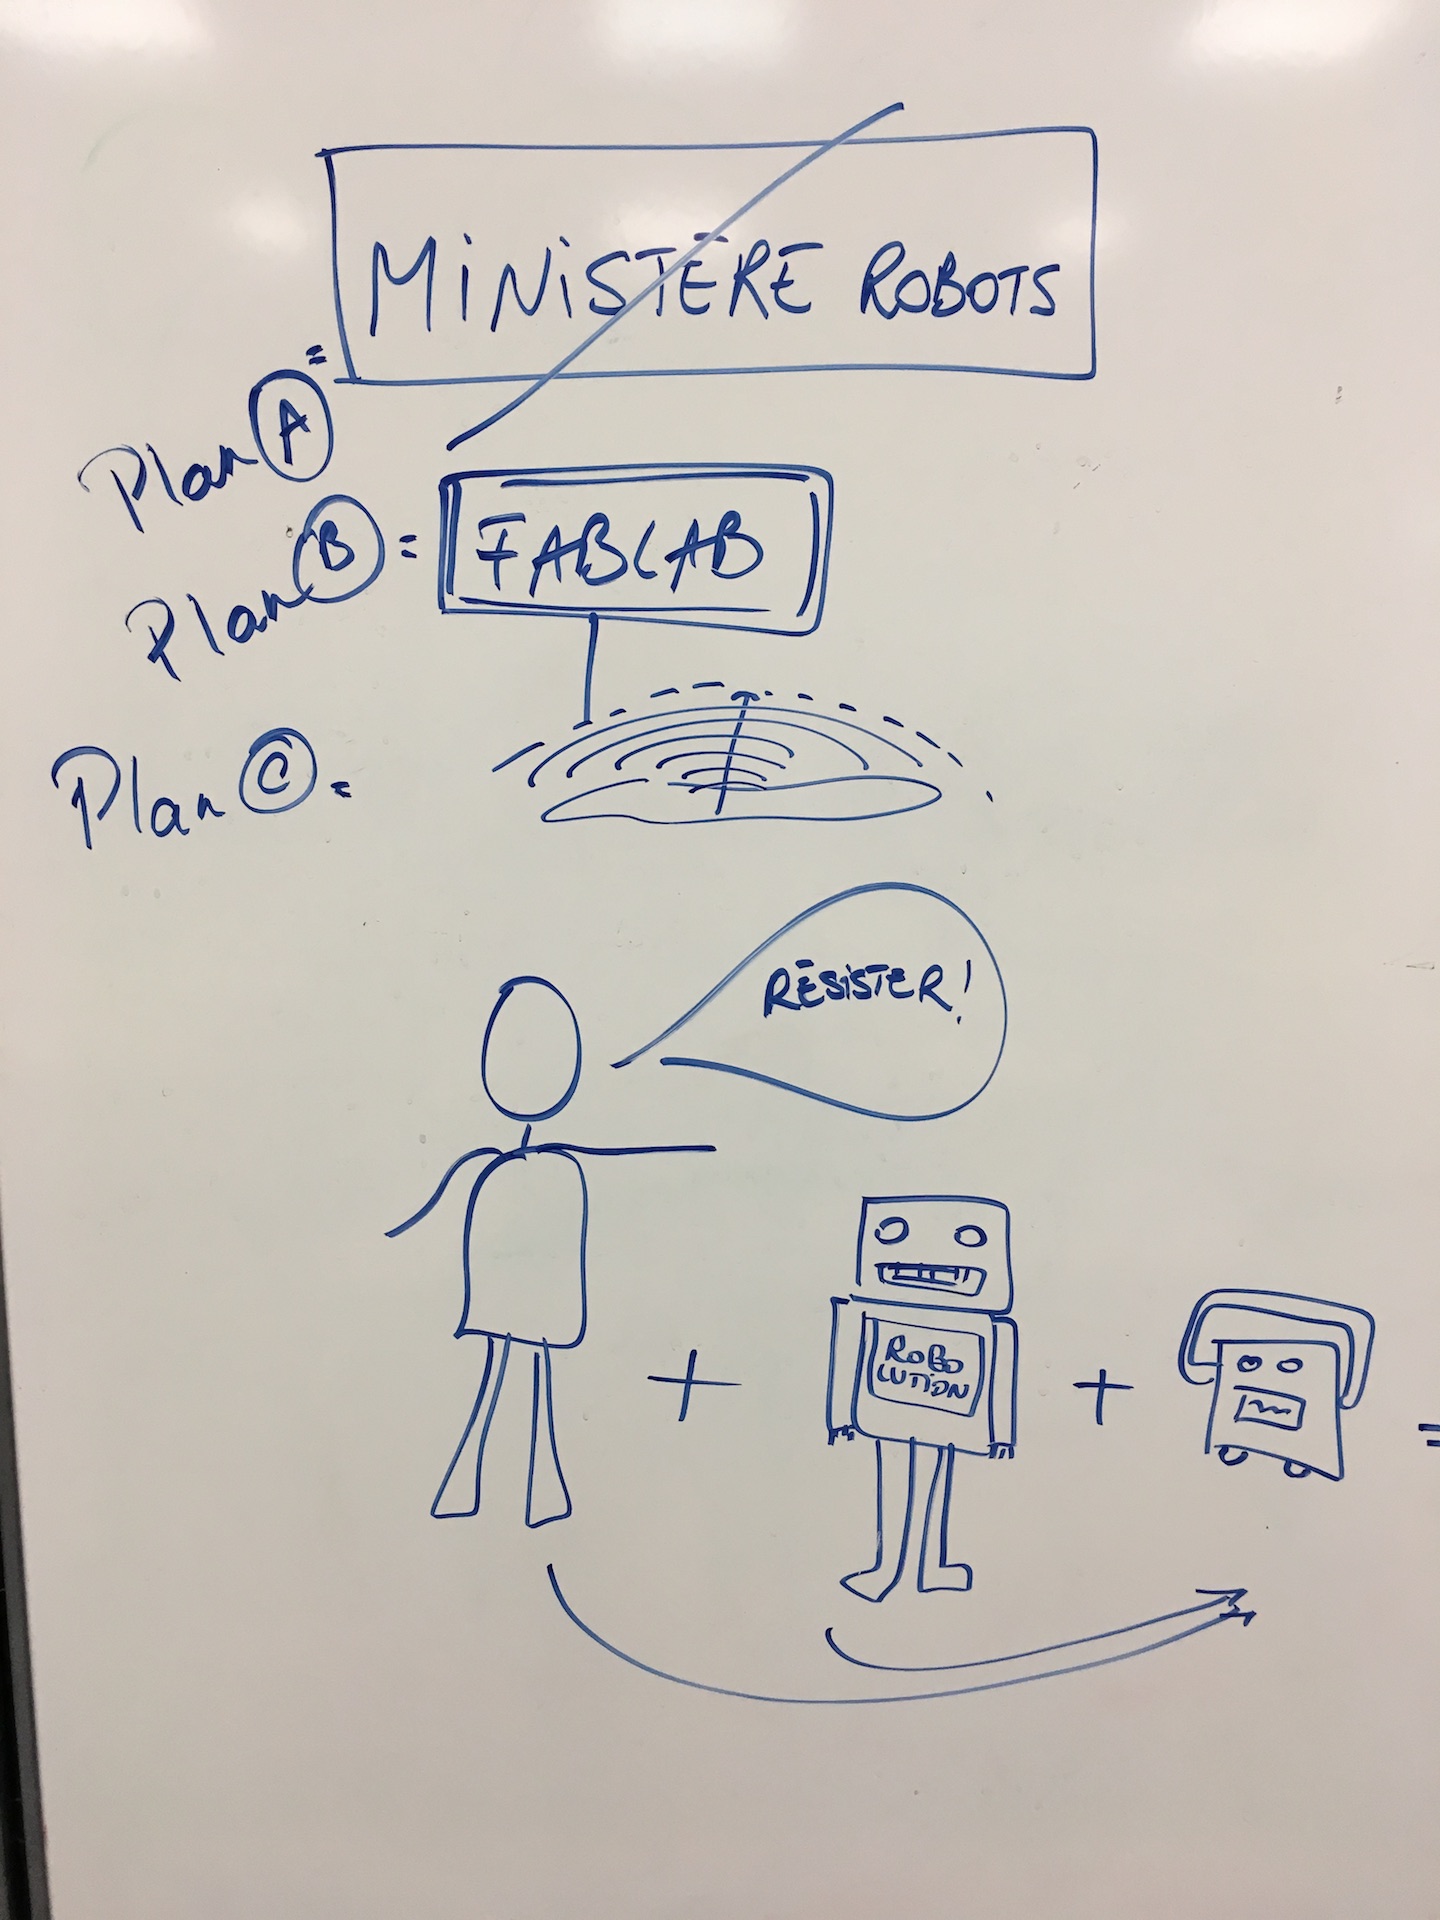 MINISTĒRE ROBOTS
Plan A =
Plan B = FABLAB
Plan C =
RĒSISTER!
+ ROBO
LUTION + =